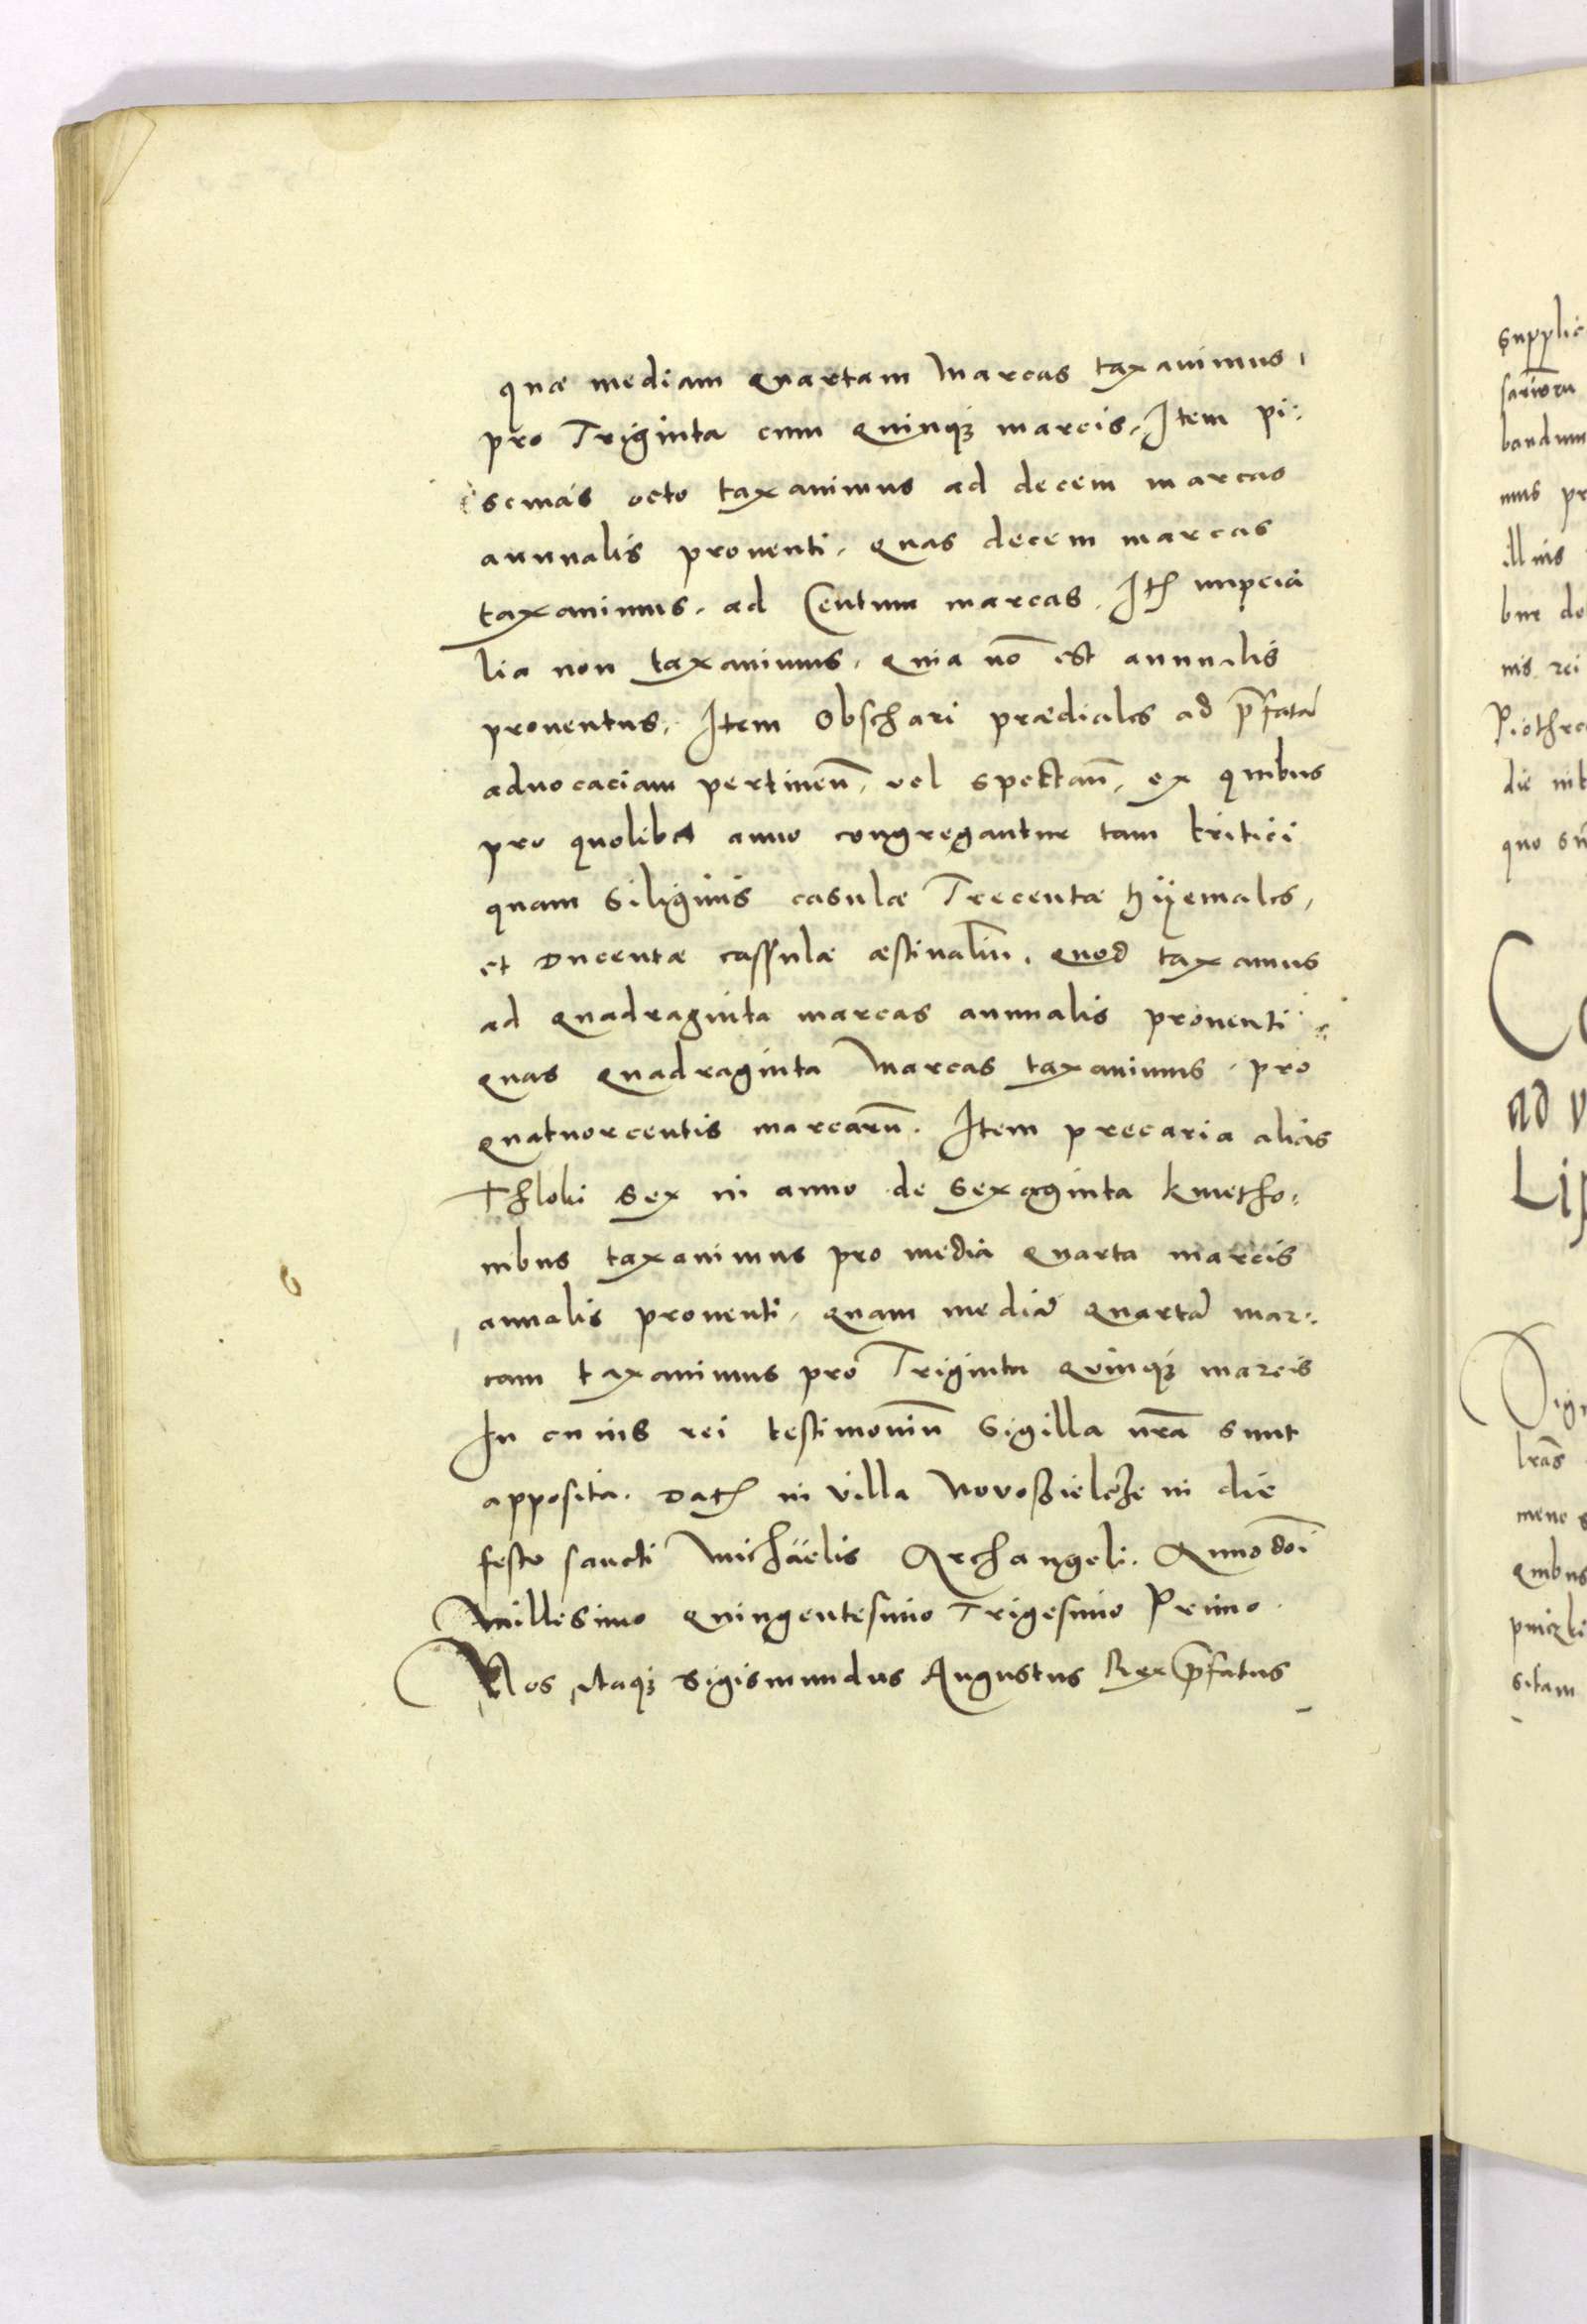 quæ mediam quartam marcas taxauimus,
pro Triginta cum quinqꝫ marcis, Item pi-
scinas octo taxauimus ad decem marcas
annualis prouenti, quas decem marcas
taxauimus, ad Centum marcas, Itꝫ
lia non taxauimus, quia nō est annualis
prouentus, Item Obschari prædiales ad p̄fatā
aduocaciam pertineñ, vel spectañ, ex quibus
pro quolibet anno congregantur tam tritici
quam Siliginis casulæ Trecentæ hÿemales,
et Ducentæ cassulæ æstiualiū, quod taxamus
ad quadraginta marcas annualis prouenti
quas quadraginta Marcas taxauimus, pro
quatuorcentis marcarū. Item precaria alias
Thloki sex in anno de sexaginta kmetho-
nibus taxauimus pro media quarta marcis
annalis prouenti, quam mediā quartā mar-
cam taxauimus pro Triginta quinqꝫ marcis
In cuius rei testimoniū Sigilla nrā sunt
apposita. Datꝫ in villa Novosielcze in die
festo sancti Michäelis Archangeli. Anno doi
Millesimo quingentesimo Trigesimo Primo.
Nos itaqꝫ Sigismundus Augustus Rex p̄fatus
supplic
bandum
mus pr
illius
bur do
nis rei
Piothrc
die
quo
C
ad v
Lip
Dig
lrās
mene s
quibus
sitam